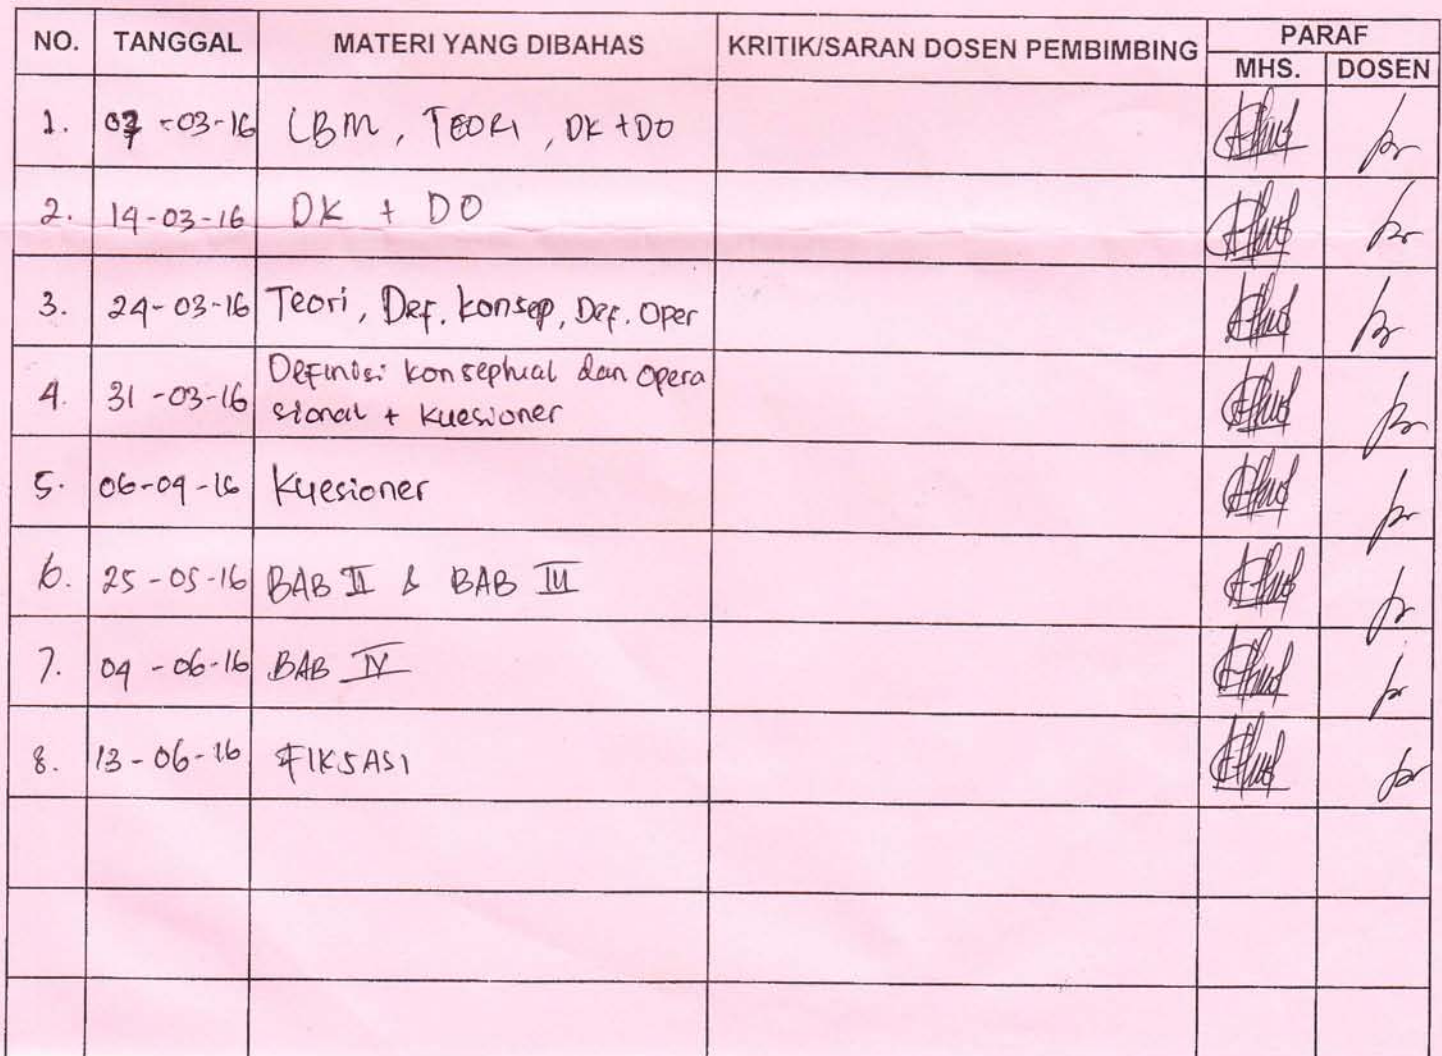 NO. TANGGAL MATERI YANG DIBAHAS KRITIK/SARAN DOSEN PEMBIMBING PARAF
MHS. DOSEN
1. 07-03-16 LBM, TEORI, DK+DO
2. 14-03-16 DK + DO
3. 24-03-16 Teori, Def. konsep, Def. Oper
4. 31-03-16 Definisi konseptual dan opera
sional + kuesioner
5. 06-04-16 Kuesioner
6. 25-05-16 BAB II & BAB III
7. 04-06-16 BAB IV
8. 13-06-16 FIKSASI